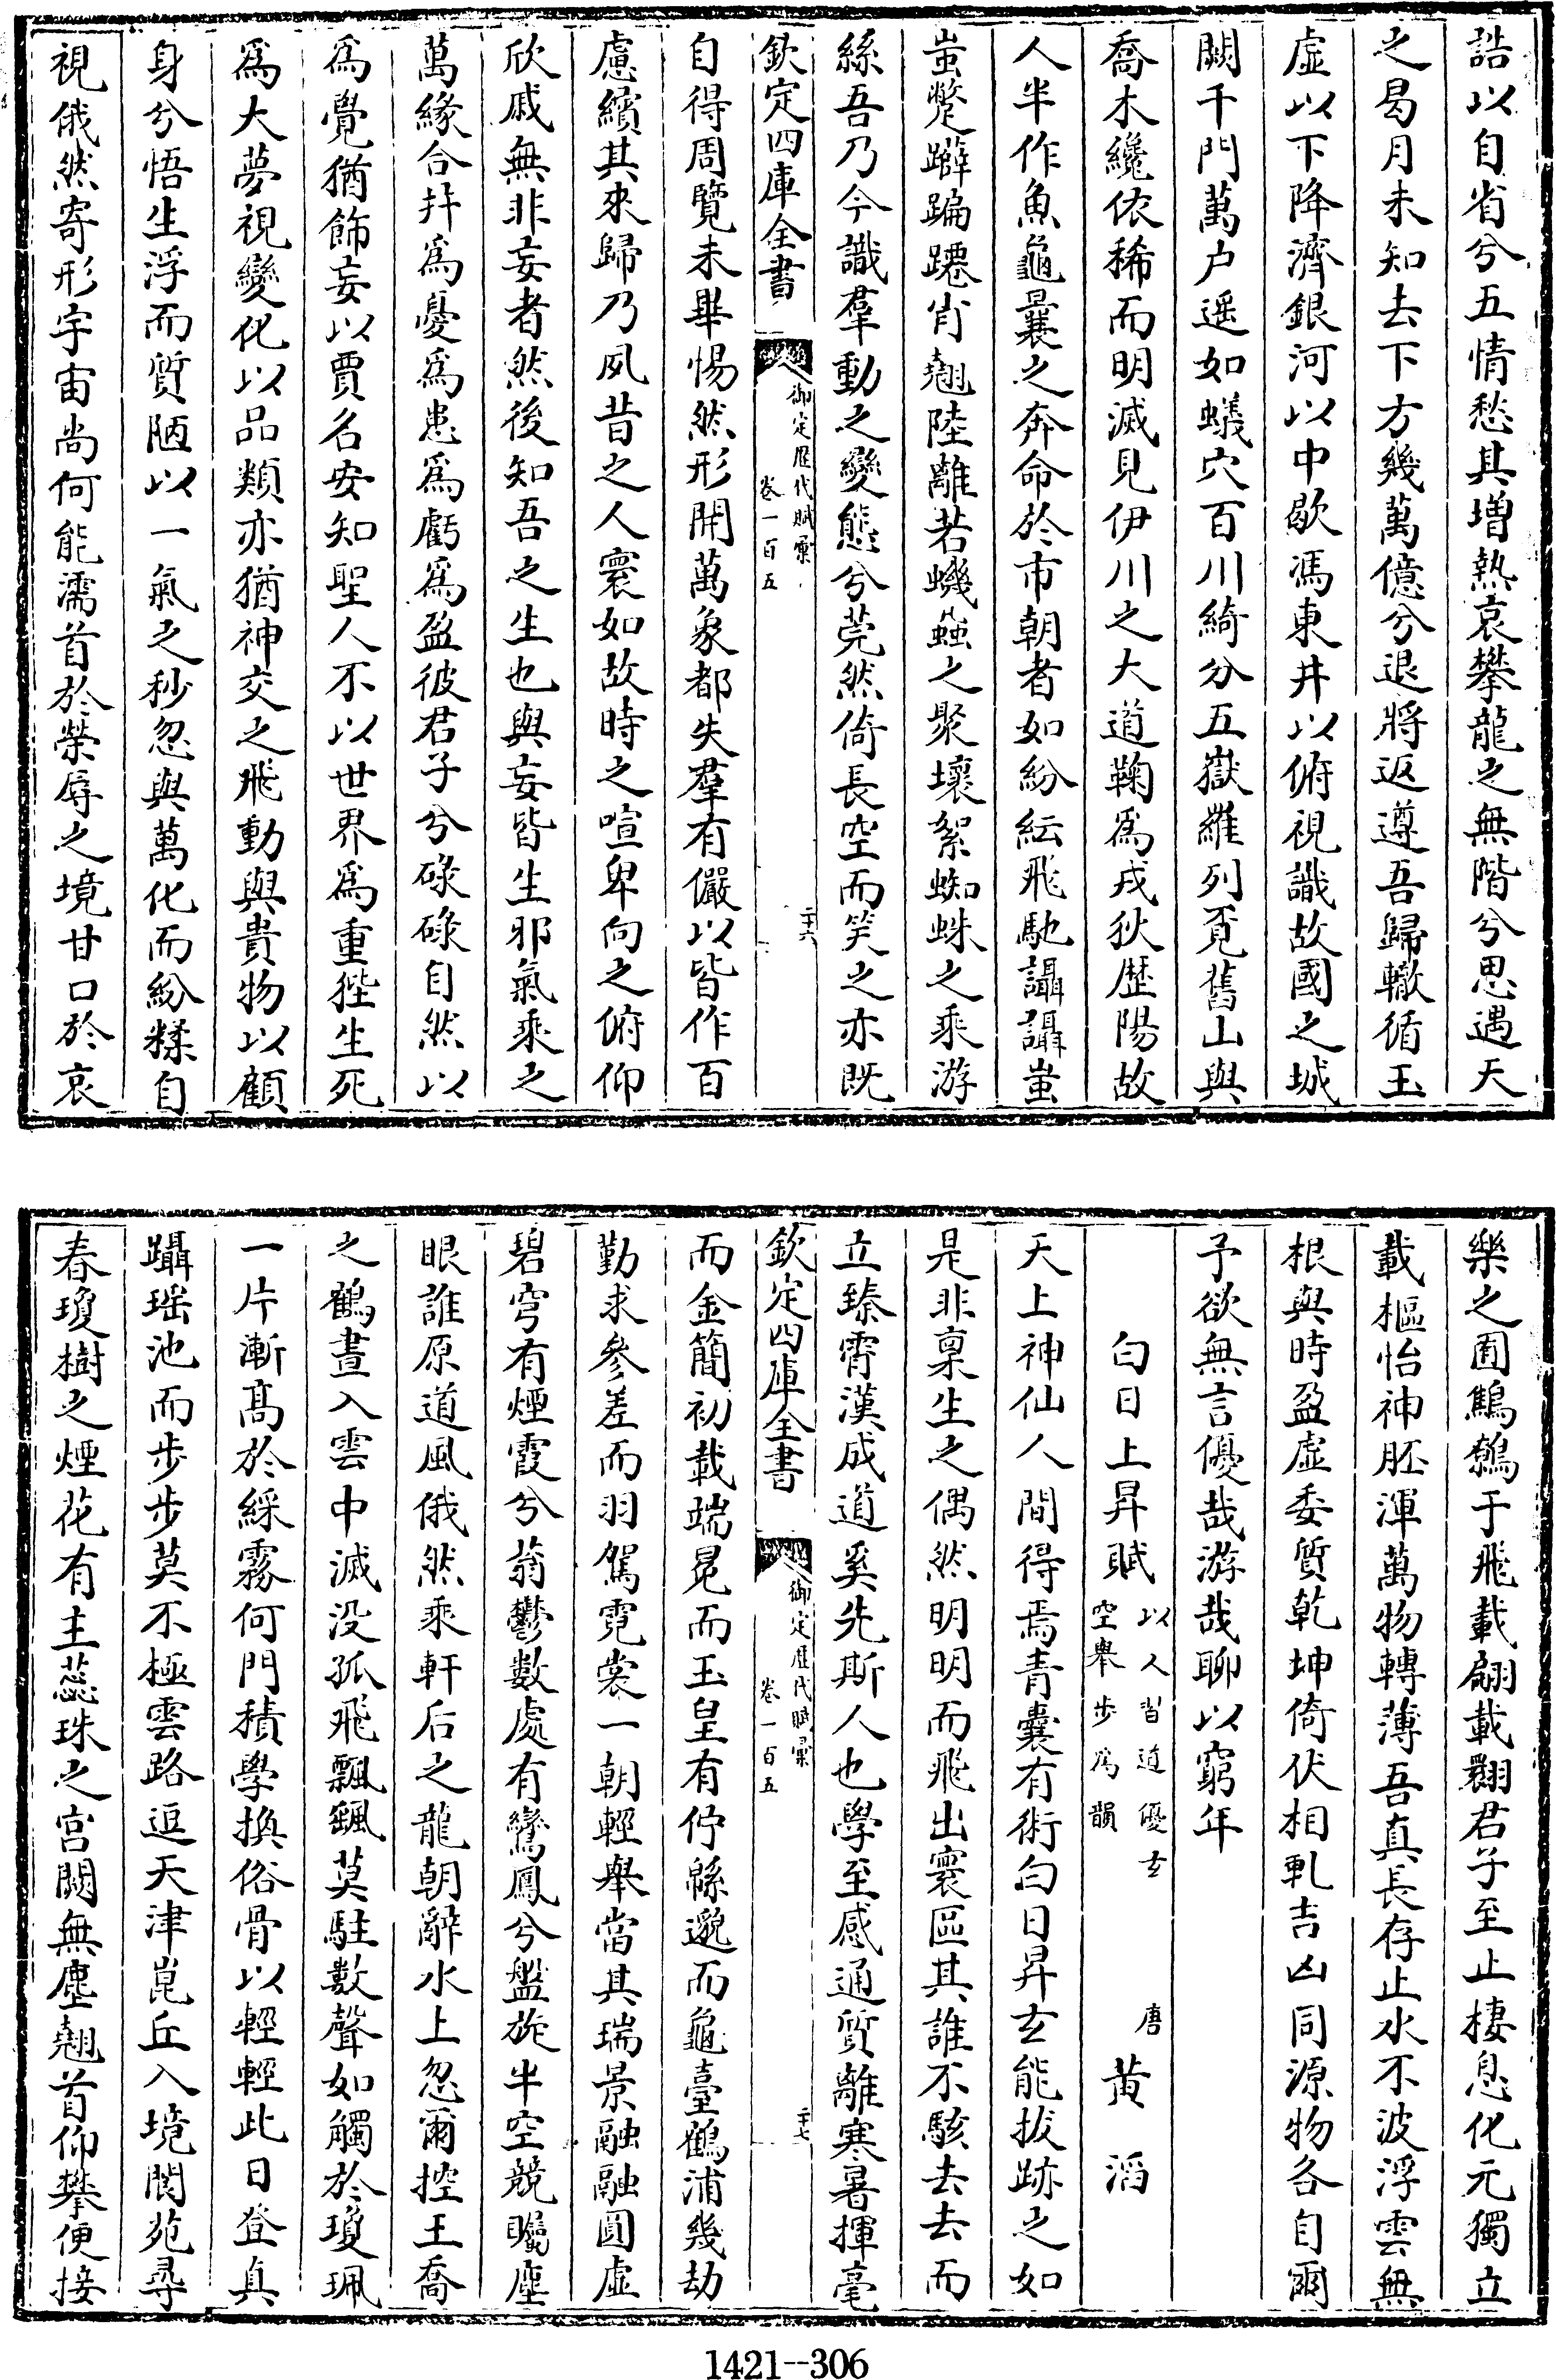 誥以自省兮五情愁其增熱哀攀龍之無階兮思遇天
之曷月未知去下方幾萬億兮退將返遵吾歸轍循玉
虛以下降濟銀河以中歇馮東井以俯視識故國之城
闕千門萬户遥如蟻穴百川綺分五嶽羅列覔舊山與
喬木纔依稀而明滅見伊川之大道鞠為戎狄歴陽故
人半作魚龜曩之奔命於市朝者如紛紜飛馳讘讘蚩
蚩躄躃蹁躚肖翹陸離若蠛蠓之聚壞絮蜘蛛之乘游
絲吾乃今識羣動之變態兮莞然倚長空而笑之亦既
欽定四庫全書
御定歴代賦彙
卷一百五
二十六
自得周覽未畢惕然形開萬象都失羣有儼以皆作百
慮繽其來歸乃夙昔之人寰如故時之喧卑向之俯仰
欣戚無非妄者然後知吾之生也與妄皆生邪氣乘之
萬緣合并爲憂爲患爲虧爲盈彼君子兮碌碌自然以
爲覺猶飾妄以賈名安知聖人不以世界爲重陛生死
爲大夢視變化以品類亦猶神交之飛動與貴物以顧
身兮悟生浮而質陋以一氣之秒忽與萬化而紛糅自
視俄然寄形宇宙尚何能濡首於榮辱之境甘口於哀
樂之囿鷦鷯于飛載翩載翾君子至止棲息化元獨立
載樞怡神胚渾萬物轉薄吾真長存止水不波浮雲無
根與時盈虛委質乾坤倚伏相軋吉凶同源物各自爾
予欲無言優哉游哉聊以窮年
白日上昇賦
以人習道優玄
空舉步為韻
唐
黄滔
天上神仙人間得焉青囊有術白日昇玄能拔跡之如
是非稟生之偶然明明而飛出寰區其誰不駭去去而
立臻霄漢成道奚先斯人也學至感通質離寒暑揮毫
欽定四庫全書
御定歴代賦彙
卷一百五
二十七
而金簡初載端冕而玉皇有佇緜邈而龜臺鶴浦幾劫
勤求參差而羽駕霓裳一朝輕舉當其瑞景融融圓虛
碧穹有煙霞兮蓊鬱數處有鸞鳳兮盤旋半空競矚塵
眼誰原道風俄然乘軒后之龍朝辭水上忽爾控王喬
之鶴晝入雲中滅没孤飛飄颻莫駐數聲如觸於瓊珮
一片漸高於綵霧何門積學換俗骨以輕輕此日登真
躡瑶池而步步莫不極雲路逗天津崑丘入境閬苑尋
春瓊樹之煙花有主蕊珠之宫闕無塵翹首仰攀便接
1421--306